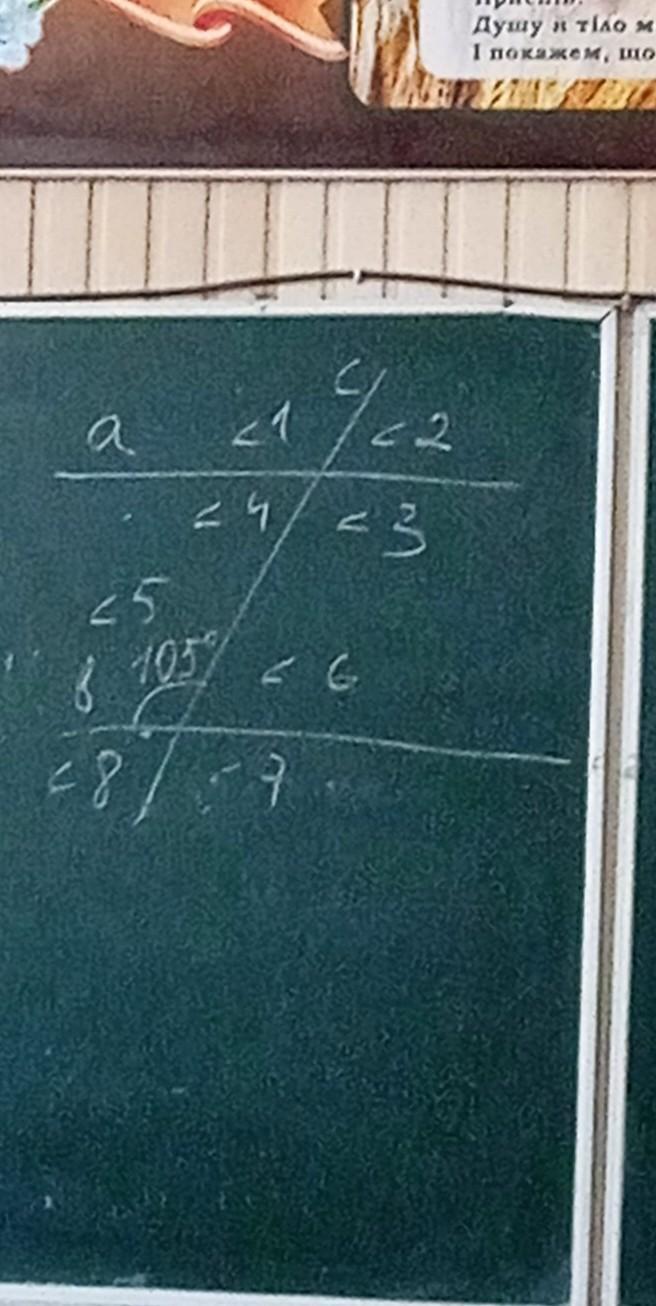 Приспів:
Душу й тіло м
І покажем, що
c
a <1 <2
<4 <3
<5
b 105° <6
<8 <7